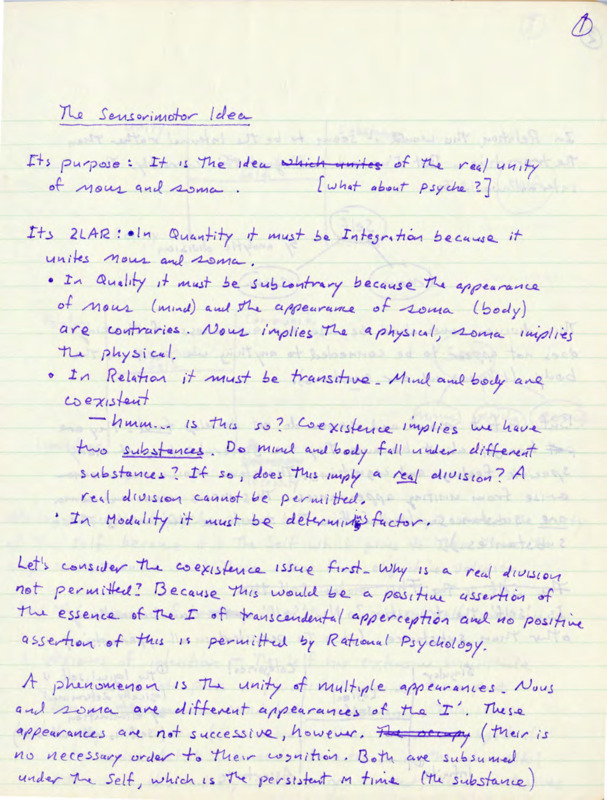 1
The Sensorimotor Idea
Its purpose: It is the idea which unites of the real unity
of nous and soma. [What about psyche?]
Its 2LAR: • In Quantity it must be Integration because it
unites nous and soma.
• In Quality it must be subcontrary because the appearance
of nous (mind) and the appearance of soma (body)
are contraries. Nous implies the aphysical, soma implies
the physical.
• In Relation it must be transitive. Mind and body are
coexistent
— hmm... is this so? Coexistence implies we have
two substances. Do mind and body fall under different
substances? If so, does this imply a real division? A
real division cannot be permitted.
• In Modality it must be determining factor.
Let's consider the coexistence issue first. Why is a real division
not permitted? Because this would be a positive assertion of
the essence of the I of transcendental apperception and no positive
assertion of this is permitted by Rational Psychology.
A phenomenon is the unity of multiple appearances. Nous
and soma are different appearances of the 'I'. These
appearances are not successive, however. The occupy (their is
no necessary order to their cognition. Both are subsumed
under the Self, which is the persistent in time (the substance)